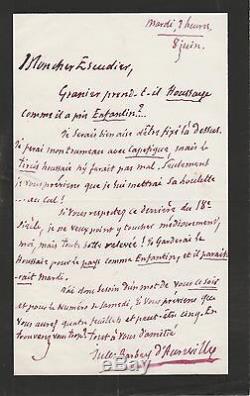 Mardi, 3 heures
8 juin.
Mon cher Escudier,
Granier prend-il Houssaye
comme il a pris Enfantin?..
Je serais bien aise d'être fixé là dessus.
Je ferai mon trumeau avec Capefigue, mais le
Tircis houssaie n'y ferait pas mal. Seulement
je vous préviens que je lui mettrai sa houlette
... au Cul!
Si vous respectez ce derrière du 18e
Siècle, je ne veux point y toucher médiocrement,
moi, mais toute patte relevée! Je Garderai le
houssaie pour le pays comme Enfantin, et il paraît
rait Mardi.
J'ai donc besoin d'un mot de Vous ce soir
et pour le Numéro de Samedi. Je Vous préviens que
Vous aurez quatre feuillets et peut-être cinq. En
trouverez vous trop? Tout à Vous d'amitié
Jules Barbey d'Aurevilly